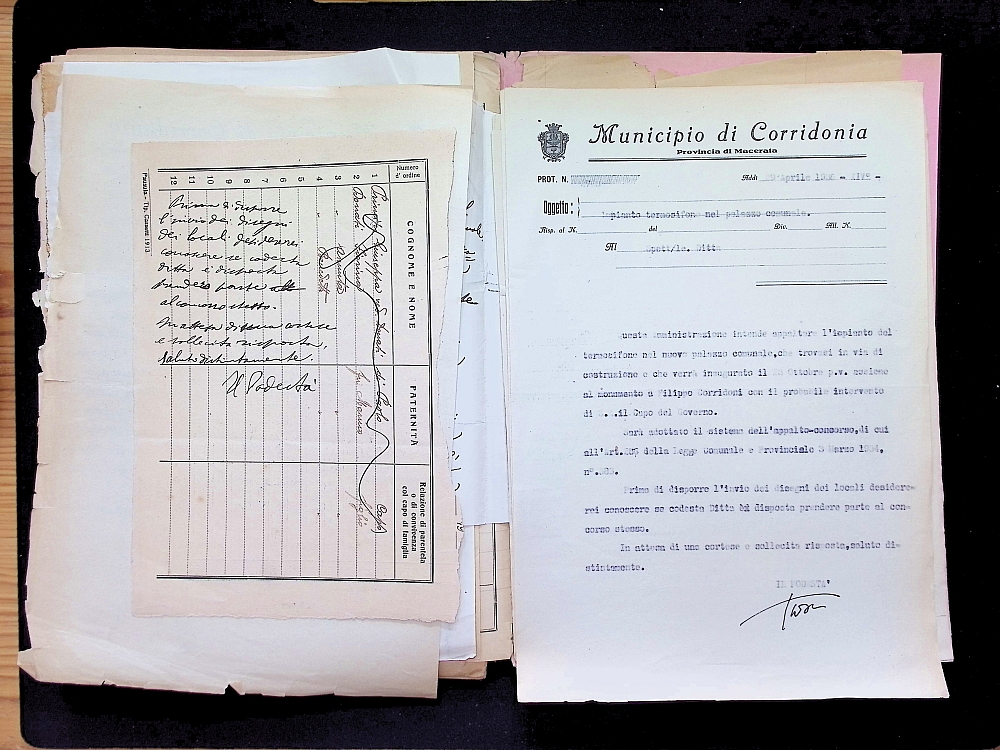 Parma - Tip. Cassetti 1913
Numero d'ordine
COGNOME E NOME
PATERNITÀ
Relazione di parentela
o di convivenza
col capo di famiglia
1
2
3
4
5
6
7
8
9
10
11
12
Prima di disporre
l'invio dei disegni
dei locali desidererei
conoscere se codesta
ditta è disposta
prendere parte
al concorso stesso.
In attesa di una cortese
e sollecita risposta,
saluto distintamente.
Il Podestà
Municipio di Corridonia
Provincia di Macerata
PROT. N.
Addì Aprile 1936 - XIV° -
Oggetto:
Impianto termosifone nel palazzo comunale.
Risp. al N. del Div. All. N.
Al Spett/le. Ditta
Questa Amministrazione intende appaltare l'impianto del
termosifone nel nuovo palazzo comunale,che trovasi in via di
costruzione e che verrà inaugurato il Ottobre p.v. assieme
al monumento a Filippo Corridoni con il probabile intervento
di S.E.il Capo del Governo.
Sarà adottato il sistema dell'appalto-concorso,di cui
all'art. della legge Comunale e Provinciale 3 Marzo 1934,
n°.383.
Prima di disporre l'invio dei disegni dei locali desidere-
rei conoscere se codesta Ditta è disposta prendere parte al con-
corso stesso.
In attesa di una cortese e sollecita risposta,saluto di-
stintamente.
IL PODESTA'